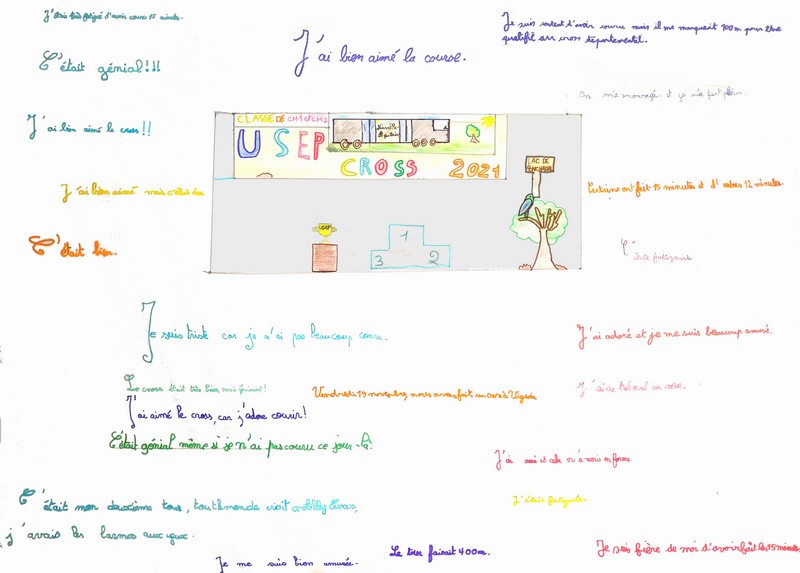 J'étais très fatigué d'avoir couru 15 minutes.
Je suis content d'avoir couru mais il me manquait 100m pour être
qualifié au cross départemental.
J'ai bien aimé la course.
C'était génial!!!
On m'a encouragé et je
J'ai bien aimé le cross!!
CLASSE DE CM1 et CM2
USEP
CROSS 2021
LAC DE
J'ai bien aimé mais c'était
Certains ont fait 15 minutes et d'autres 12 minutes.
C'était bien.
USEP
1
2
3
C'était fatigante
Je suis triste car je n'ai pas beaucoup couru.
J'ai adoré et je me suis beaucoup amusé.
Le cross était très bien mais
Vendredi 19 novembre, nous avons fait un cross à
J'ai aimé le cross, car j'adore courir!
C'était génial même si je n'ai pas couru ce jour-là.
J'ai aimé et cela m'a
C'était mon deuxième tour, tout le monde criait
j'avais les larmes aux yeux.
J'étais fatiguée.
Je me suis bien amusée.
Le tour faisait 400m.
Je suis fière de moi d'avoir fait les 15 minutes.